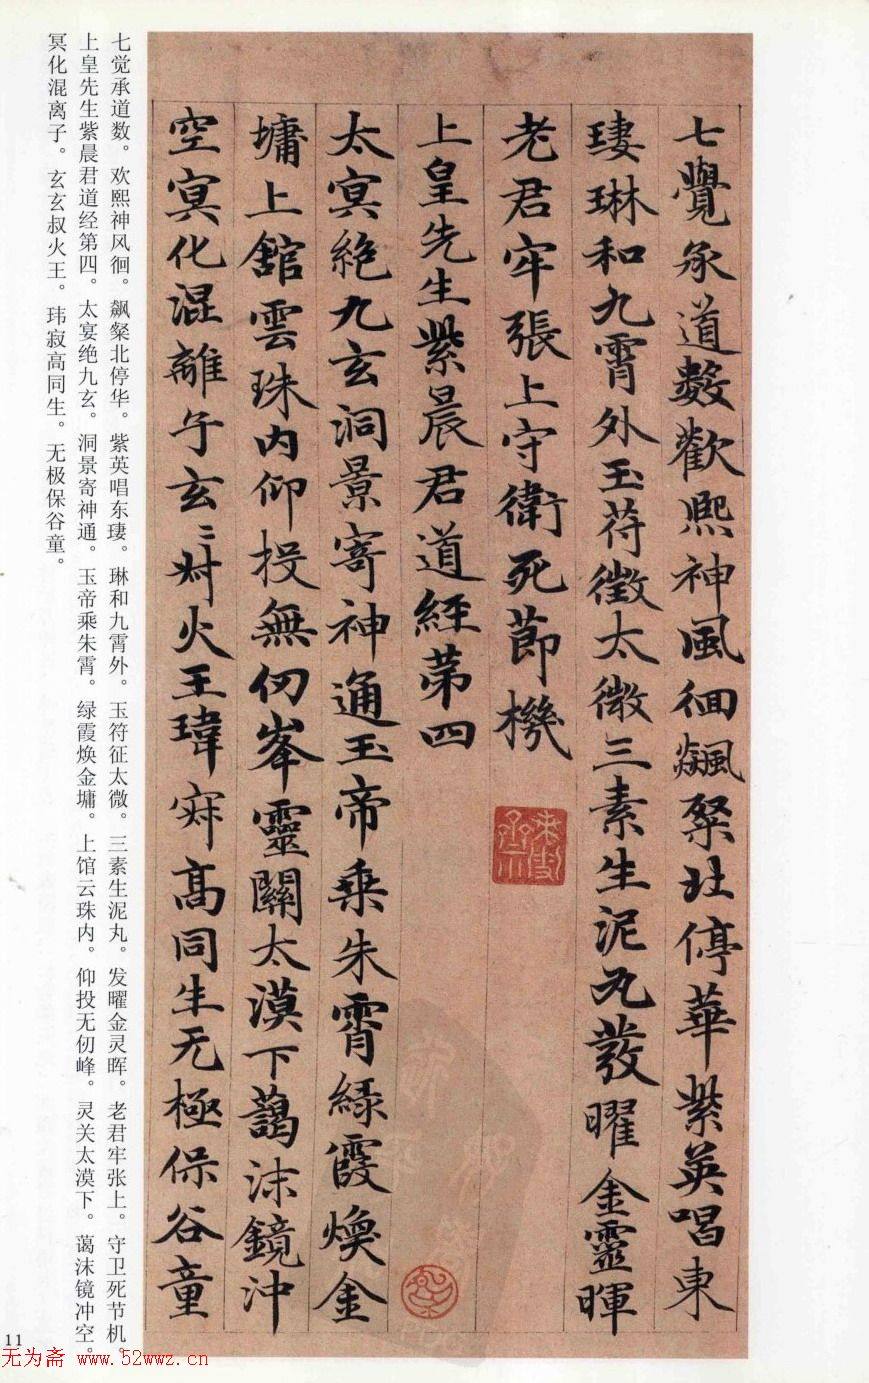 七覺承道數歡熙神風徊飇粲北停華紫英唱東
琲琳和九霄外玉苻徵太微三素生泥丸發曜金靈暉
老君牢張上守衛死節機
上皇先生紫晨君道經苐四
太冥絶九玄洞景寄神通玉帝乗朱霄緑霞煥金
墉上舘雲珠内仰投無仞峯靈關太漠下藹沫鏡沖
空冥化混離子玄〻叔火王瑋寂髙同生无極保谷童
七觉承道数。欢熙神风徊。飙粲北停华。紫英唱东琲。琳和九霄外。玉符征太微。三素生泥丸。发曜金灵晖。老君牢张上。守卫死节机。
上皇先生紫晨君道经第四。太宴绝九玄。洞景寄神通。玉帝乘朱霄。绿霞焕金墉。上馆云珠内。仰投无仞峰。灵关太漠下。蔼沫镜冲空。
冥化混离子。玄玄叔火王。玮寂高同生。无极保谷童。
11
无为斋 www.52wwz.cn